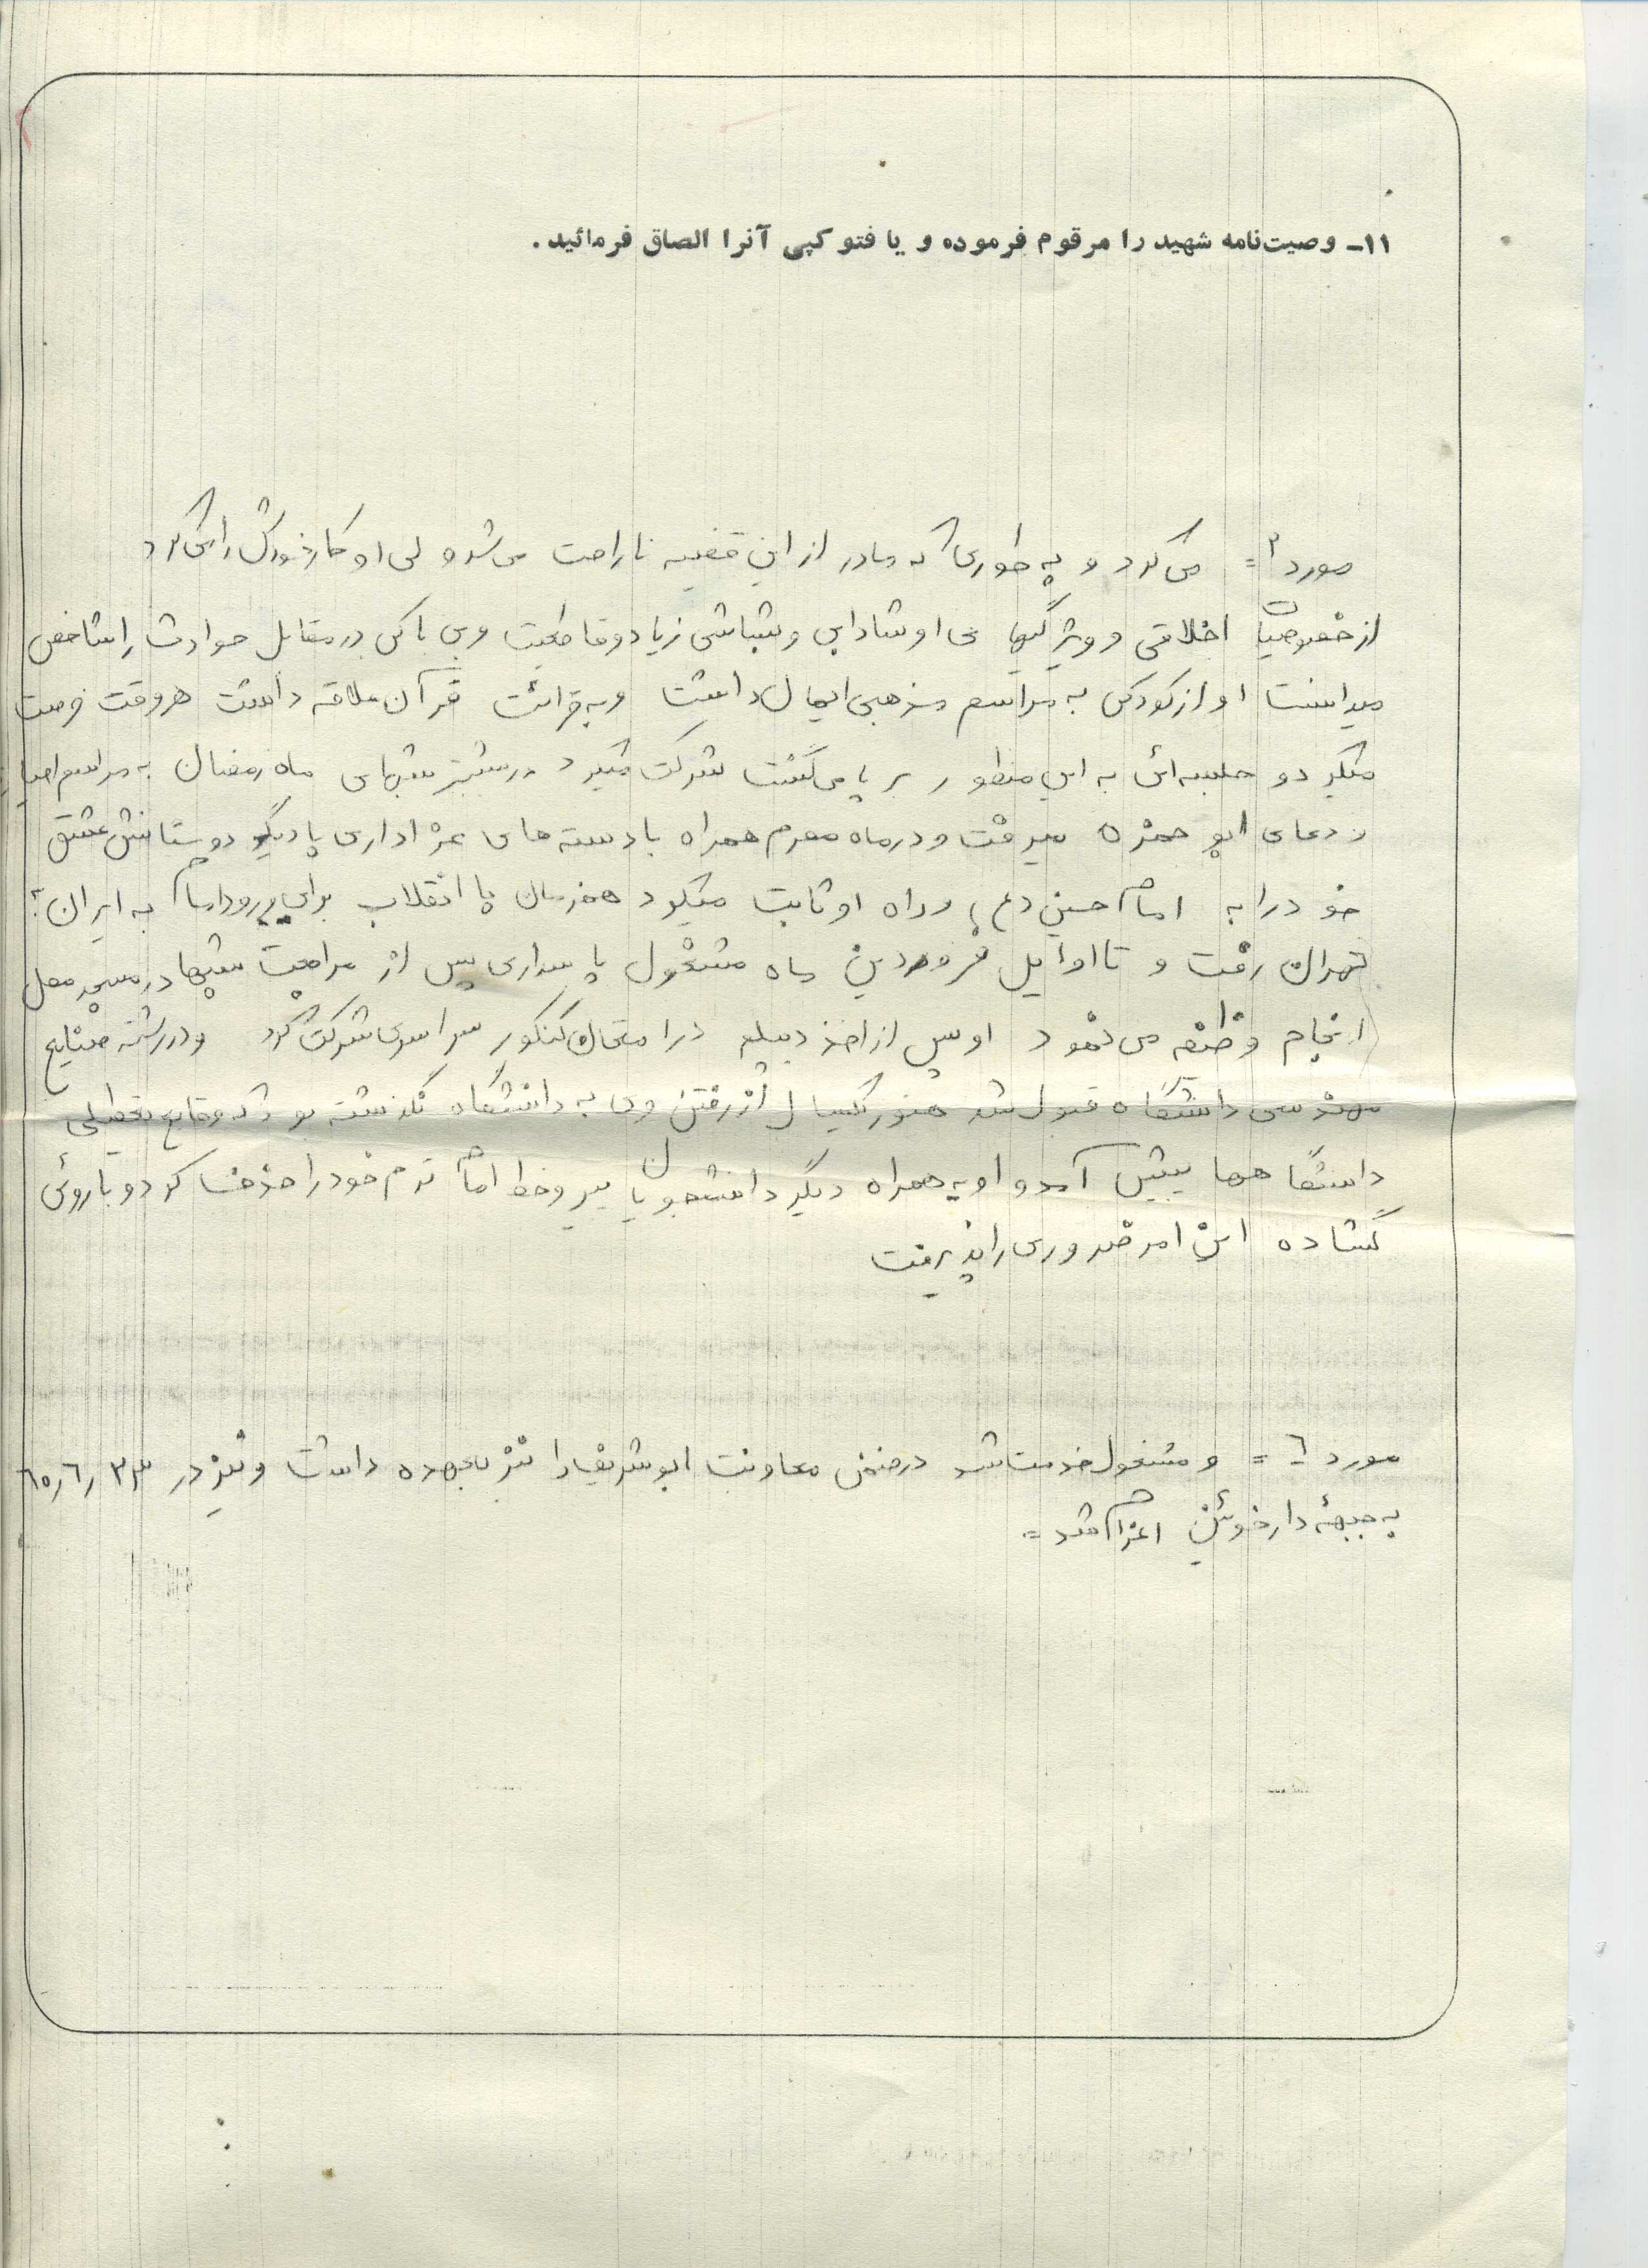 ۱۱ـ وصیت‌نامه شهید را مرقوم فرموده و یا فتوکپی آنرا الصاق فرمائید.
مورد ۳ = می کرد و به طوری که مادر از این قضیه ناراحت می شد ولی او کار خودش را می کرد
از خصوصیات اخلاقی و ویژگیهای او شادابی و بشاشی زیاد و قاطعیت و بی باکی در مقابل حوادث را شاخص
میدانست او از کودکی به مراسم مذهبی ایمان داشت و به قرائت قرآن علاقه داشت هر وقت فرصت
میکرد و جلسه‌ائی به این منظور بر پا می گشت شرکت میکرد در بیشتر شبهای ماه رمضان به مراسم احیا
و دعای ابو حمزه میرفت و در ماه محرم همراه با دسته های عزاداری با دیگر دوستانش عشق
خود را به امام حسین (ع) و راه او ثابت میکرد همزمان با انقلاب برای ورود امام به ایران به
تهران رفت و تا اوایل فروردین ماه مشغول پاسداری پس از مراجعت شبها در مسجد محل
انجام وظیفه می نمود او پس از اخذ دیپلم در امتحان کنکور سراسری شرکت کرد و در رشته صنایع
مهندسی دانشگاه قبول شد هنوز یکسال از رفتن وی به دانشگاه نگذشته بود که وقایع تعطیلی
دانشگاهها پیش آمد و او به همراه دیگر دانشجویان پیرو خط امام ترم خود را حذف کرد و با روئی
گشاده این امر ضروری را پذیرفت
مورد ٦ = و مشغول خدمت شد در ضمن معاونت ابوشریف را نیز بعهده داشت و نیز در ۶۰٫٦٫۲۳
به جبهه دارخوئین اعزام شد =